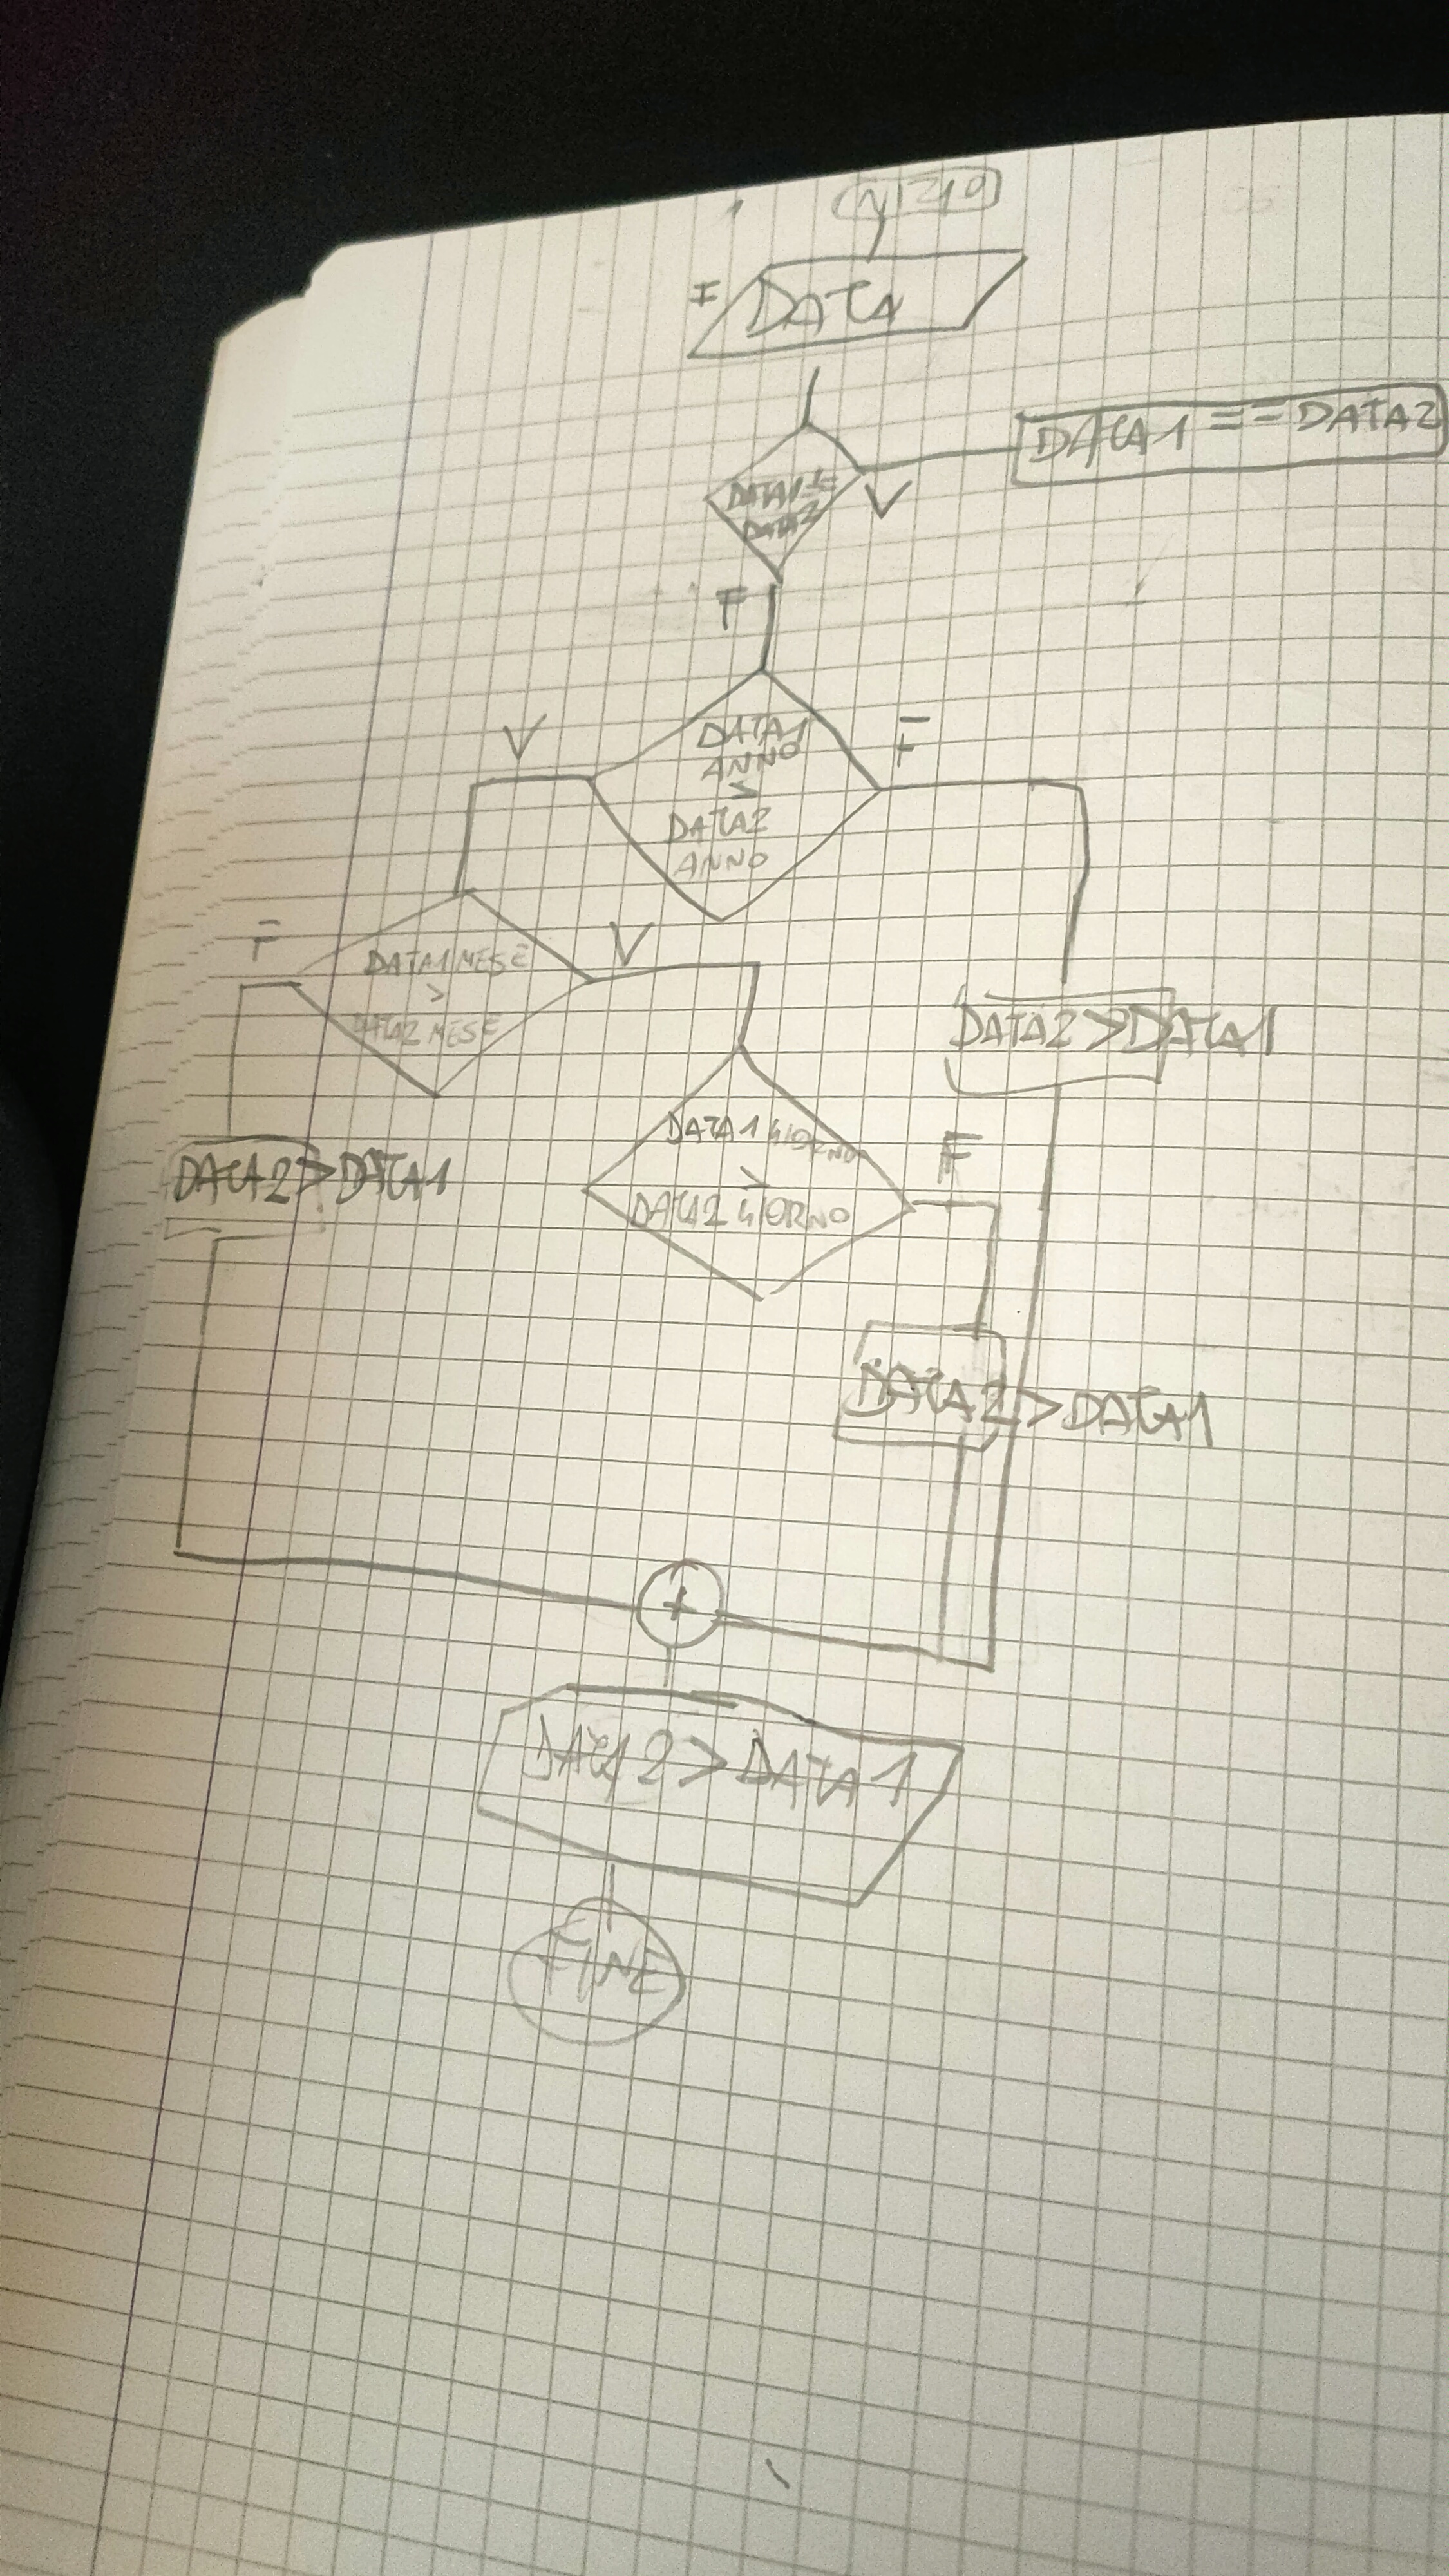 INIZIO
I DATA
DATA1 == DATA2
DATA1 ==
DATA2
V
F
V
DATA1
ANNO
>
DATA2
ANNO
F
F
DATA1 MESE
>
DATA2 MESE
V
DATA2>DATA1
DATA2>DATA1
DATA1 GIORNO
>
DATA2 GIORNO
F
DATA2>DATA1
+
DATA2>DATA1
FINE